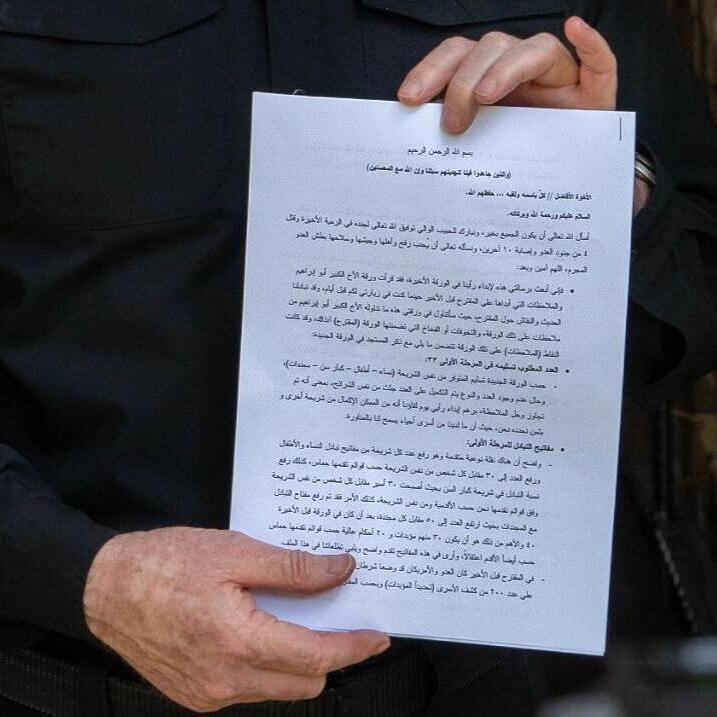 بسم الله الرحمن الرحيم
(والذين جاهدوا فينا لنهدينهم سبلنا وإن الله مع المحسنين)
الأخوة الأفاضل // كلٌ باسمه ولقبه ... حفظهم الله.
السلام عليكم ورحمة الله وبركاته.
أسأل الله تعالى أن يكون الجميع بخير، ونبارك للحبيب الوالي توفيق الله تعالى لجنده في الرمية الأخيرة وقتل
٤ من جنود العدو وإصابة ١٠ آخرين، ونسأله تعالى أن يُجنب رفح وأهلها وجيشها وسلاحها بطش العدو
المجرم، اللهم آمين وبعد:
• فإني أبعث برسالتي هذه لإبداء رأينا في الورقة الأخيرة، فقد قرأت ورقة الأخ الكبير أبو إبراهيم
والملاحظات التي أبداها على المقترح قبل الأخير حينما كنت في زيارتي لكم قبل أيام، وقد تبادلنا
الحديث والنقاش حول المقترح، حيث سأتناول في ورقتي هذه ما تناوله الأخ الكبير أبو إبراهيم من
ملاحظات على تلك الورقة، والتخوفات أو الفخاخ التي تضمنتها الورقة (المقترح) آنذاك، وقد كانت
النقاط (الملاحظات) على تلك الورقة تتضمن ما يلي مع ذكر المستجد في الورقة الجديدة:
• العدد المطلوب تسليمه في المرحلة الأولى ٣٣:
- حسب الورقة الجديدة تسليم المتوفر من نفس الشريحة (نساء – أطفال – كبار سن – مجندات)،
وحال عدم وجود العدد والنوع يتم التكميل على العدد جثث من نفس الشرائح، بمعنى أنه تم
تجاوز وحل الملاحظة، برغم إبداء رأيي يوم لقاؤنا أنه من الممكن الإكمال من شريحة أخرى و
بثمن نحدده نحن، حيث أن ما لدينا من أسرى أحياء يسمح لنا بالمناورة.
• مفاتيح التبادل للمرحلة الأولى:
- واضح أن هناك نقلة نوعية متقدمة وهو رفع عدد كل شريحة من مفاتيح تبادل النساء والأطفال
ورفع العدد إلى ٣٠ مقابل كل شخص من نفس الشريحة حسب قوائم تقدمها حماس، كذلك رفع
نسبة التبادل في شريحة كبار السن بحيث أصبحت ٣٠ أسير مقابل كل شخص من نفس الشريحة
وفق قوائم نقدمها نحن حسب الأقدمية ومن نفس الشريحة، كذلك الأمر فقد تم رفع مفتاح التبادل
مع المجندات بحيث ارتفع العدد إلى ٥٠ مقابل كل مجندة، بعد أن كان في الورقة قبل الأخيرة
٤٠ والأهم من ذلك هو أن يكون ٣٠ منهم مؤبدات و ٢٠ أحكام عالية حسب قوائم تقدمها حماس
حسب أيضاً الأقدم اعتقالاً، وأرى في هذه المفاتيح تقدم واضح ويلبي تطلعاتنا في هذا الملف.
- في المقترح قبل الأخير كان العدو والأمريكان قد وضعا شرطان
على عدد ٢٠٠ من كشف الأسرى (تحديداً المؤبدات) وبحسب